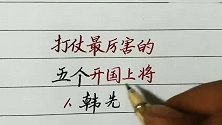 打仗最厉害的
五个开国上将
1、韩先